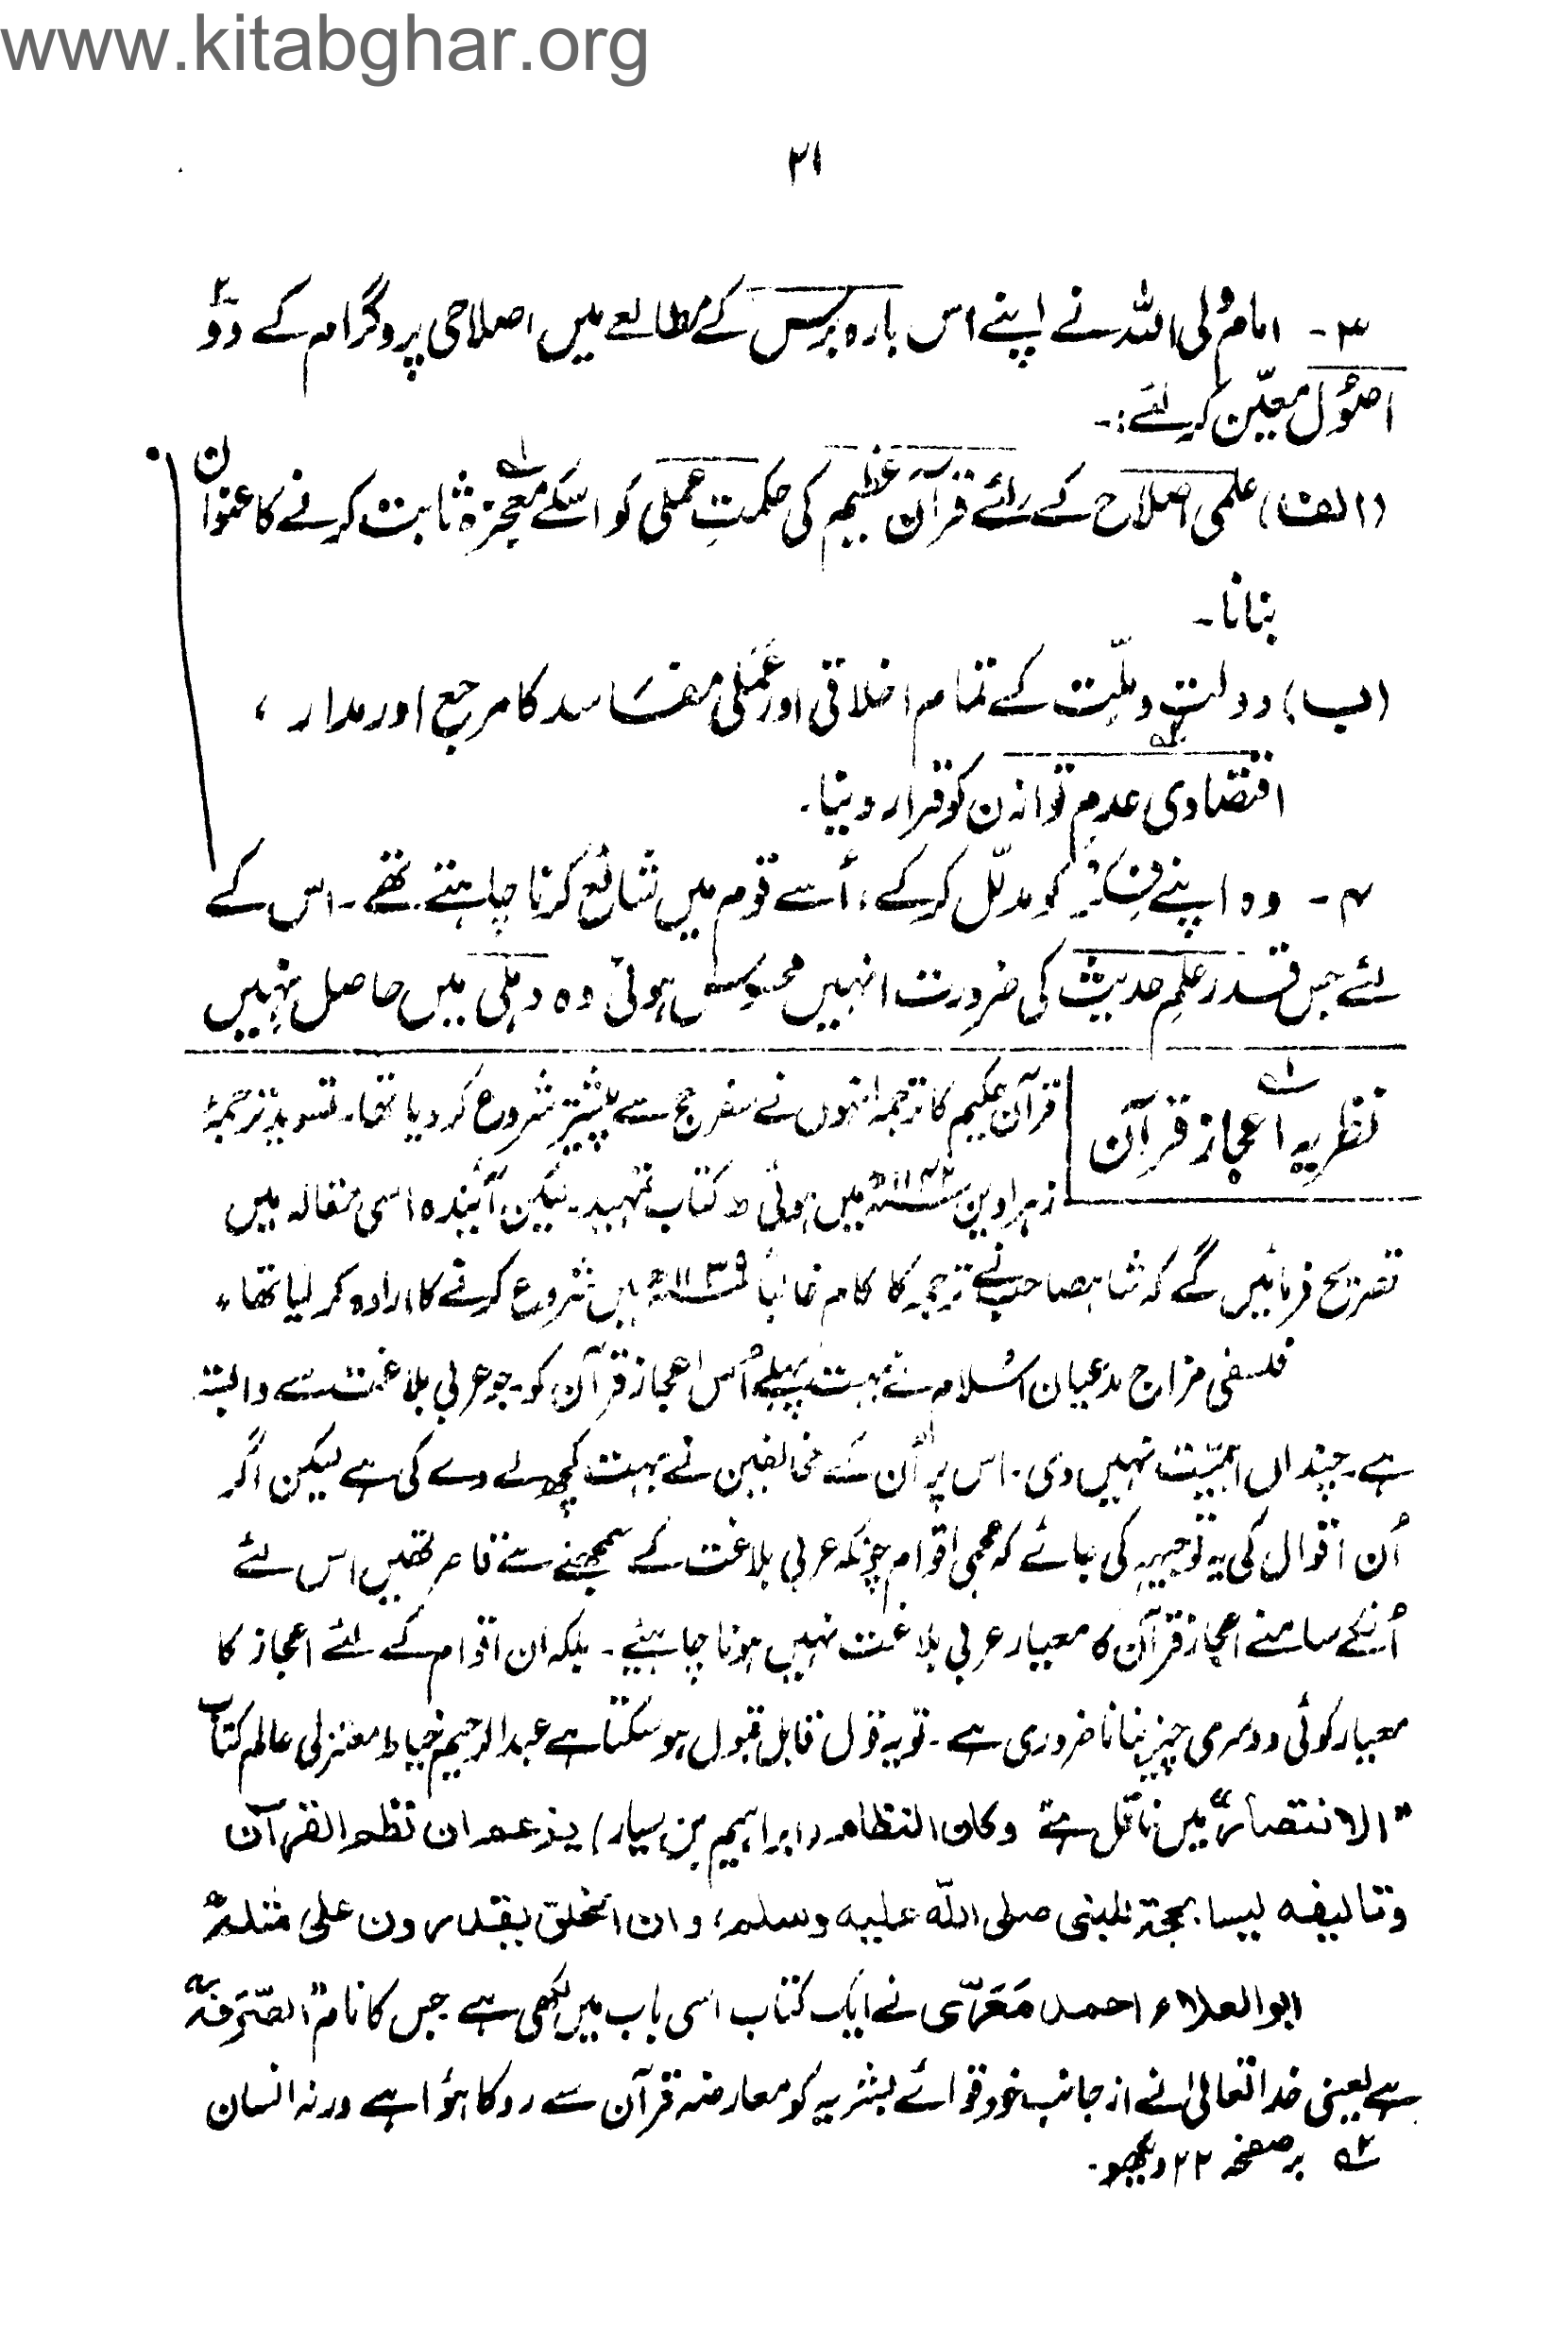 www.kitabghar.org
۲۱
۳۔ امام ولی اللہ نے اپنے اس بارہ برس کے مطالعے میں اصلاحی پروگرام کے دو۲
اصول معیّن کرلئے:۔
(الف) علمی اصلاح کے لئے قرآن عظیم کی حکمتِ عملی کو اسکے معجزہ ؎۱ ثابت کرنے کا عنوان
بنانا۔
(ب) دولت و ملّت کے تمام اخلاقی اور عَمَلی مفاسد کا مرجع اور مدار،
اقتصادی عدمِ توازن ؎۲ کو قرار دینا۔
۴۔ وہ اپنے فکر کو مدلّل کرکے، اُسے قوم میں شائع کرنا چاہتے تھے۔ اس کے
لئے جس قدر علمِ حدیث کی ضرورت انہیں محسوس ہوئی وہ دہلی میں حاصل نہیں
؎۱ نظریہ اعجاز قرآن
قرآن حکیم کا ترجمہ انہوں نے سفر حج سے پیشتر شروع کر دیا تھا۔ تسوید ترجمۂ
زہراوین ۱۱۴۲ھ میں ہوئی ط کتاب تمہید۔ لیکن آیندہ اسی مقالہ میں
تصریح فرمائیں گے کہ شاہصاحب نے ترجمہ کا کام غالباً ۱۱۳۹ھ میں شروع کرنے کا ارادہ کر لیا تھا،
فلسفی مزاج مدعیان اسلام نے بہت پہلے اُس اعجاز قرآن کو۔ جو عربی بلاغت سے وابستہ
ہے۔ چنداں اہمیّت نہیں دی۔ اس پر اُن کے مخالفین نے بہت کچھ لے دے کی ہے لیکن اگر
اُن اقوال کی یہ توجیہہ کی جائے کہ عجمی اقوام چونکہ عربی بلاغت کے سمجھنے سے قاصر تھیں اس لئے
اُنکے سامنے اعجاز قرآن کا معیار عربی بلاغت نہیں ہونا چاہیئے۔ بلکہ ان اقوام کے لئے اعجاز کا
معیار کوئی دوسری چیز بنانا ضروری ہے۔ تو یہ قول قابل قبول ہو سکتا ہے عبدالرحیم خیاط معتزلی عالم کتاب
"الانتصار" میں ناقل ہے وکان النظام (ابراہیم بن سیار) یزعم ان نظم القرآن
وتالیفہ لیسا بحجۃ للنبی صلی اللہ علیہ وسلم، وان الخلق یقدرون علی مثلہ
ابوالعلاء احمد مَعَرّی نے ایک کتاب اسی باب میں لکھی ہے جس کا نام "الصّرفہ"
ہے یعنی خدا تعالیٰ نے از جانب خود قوائے بشریہ کو معارضہ قرآن سے روکا ہؤا ہے ورنہ انسان
؎۲ بر صفحہ ۲۲ دیکھو۔